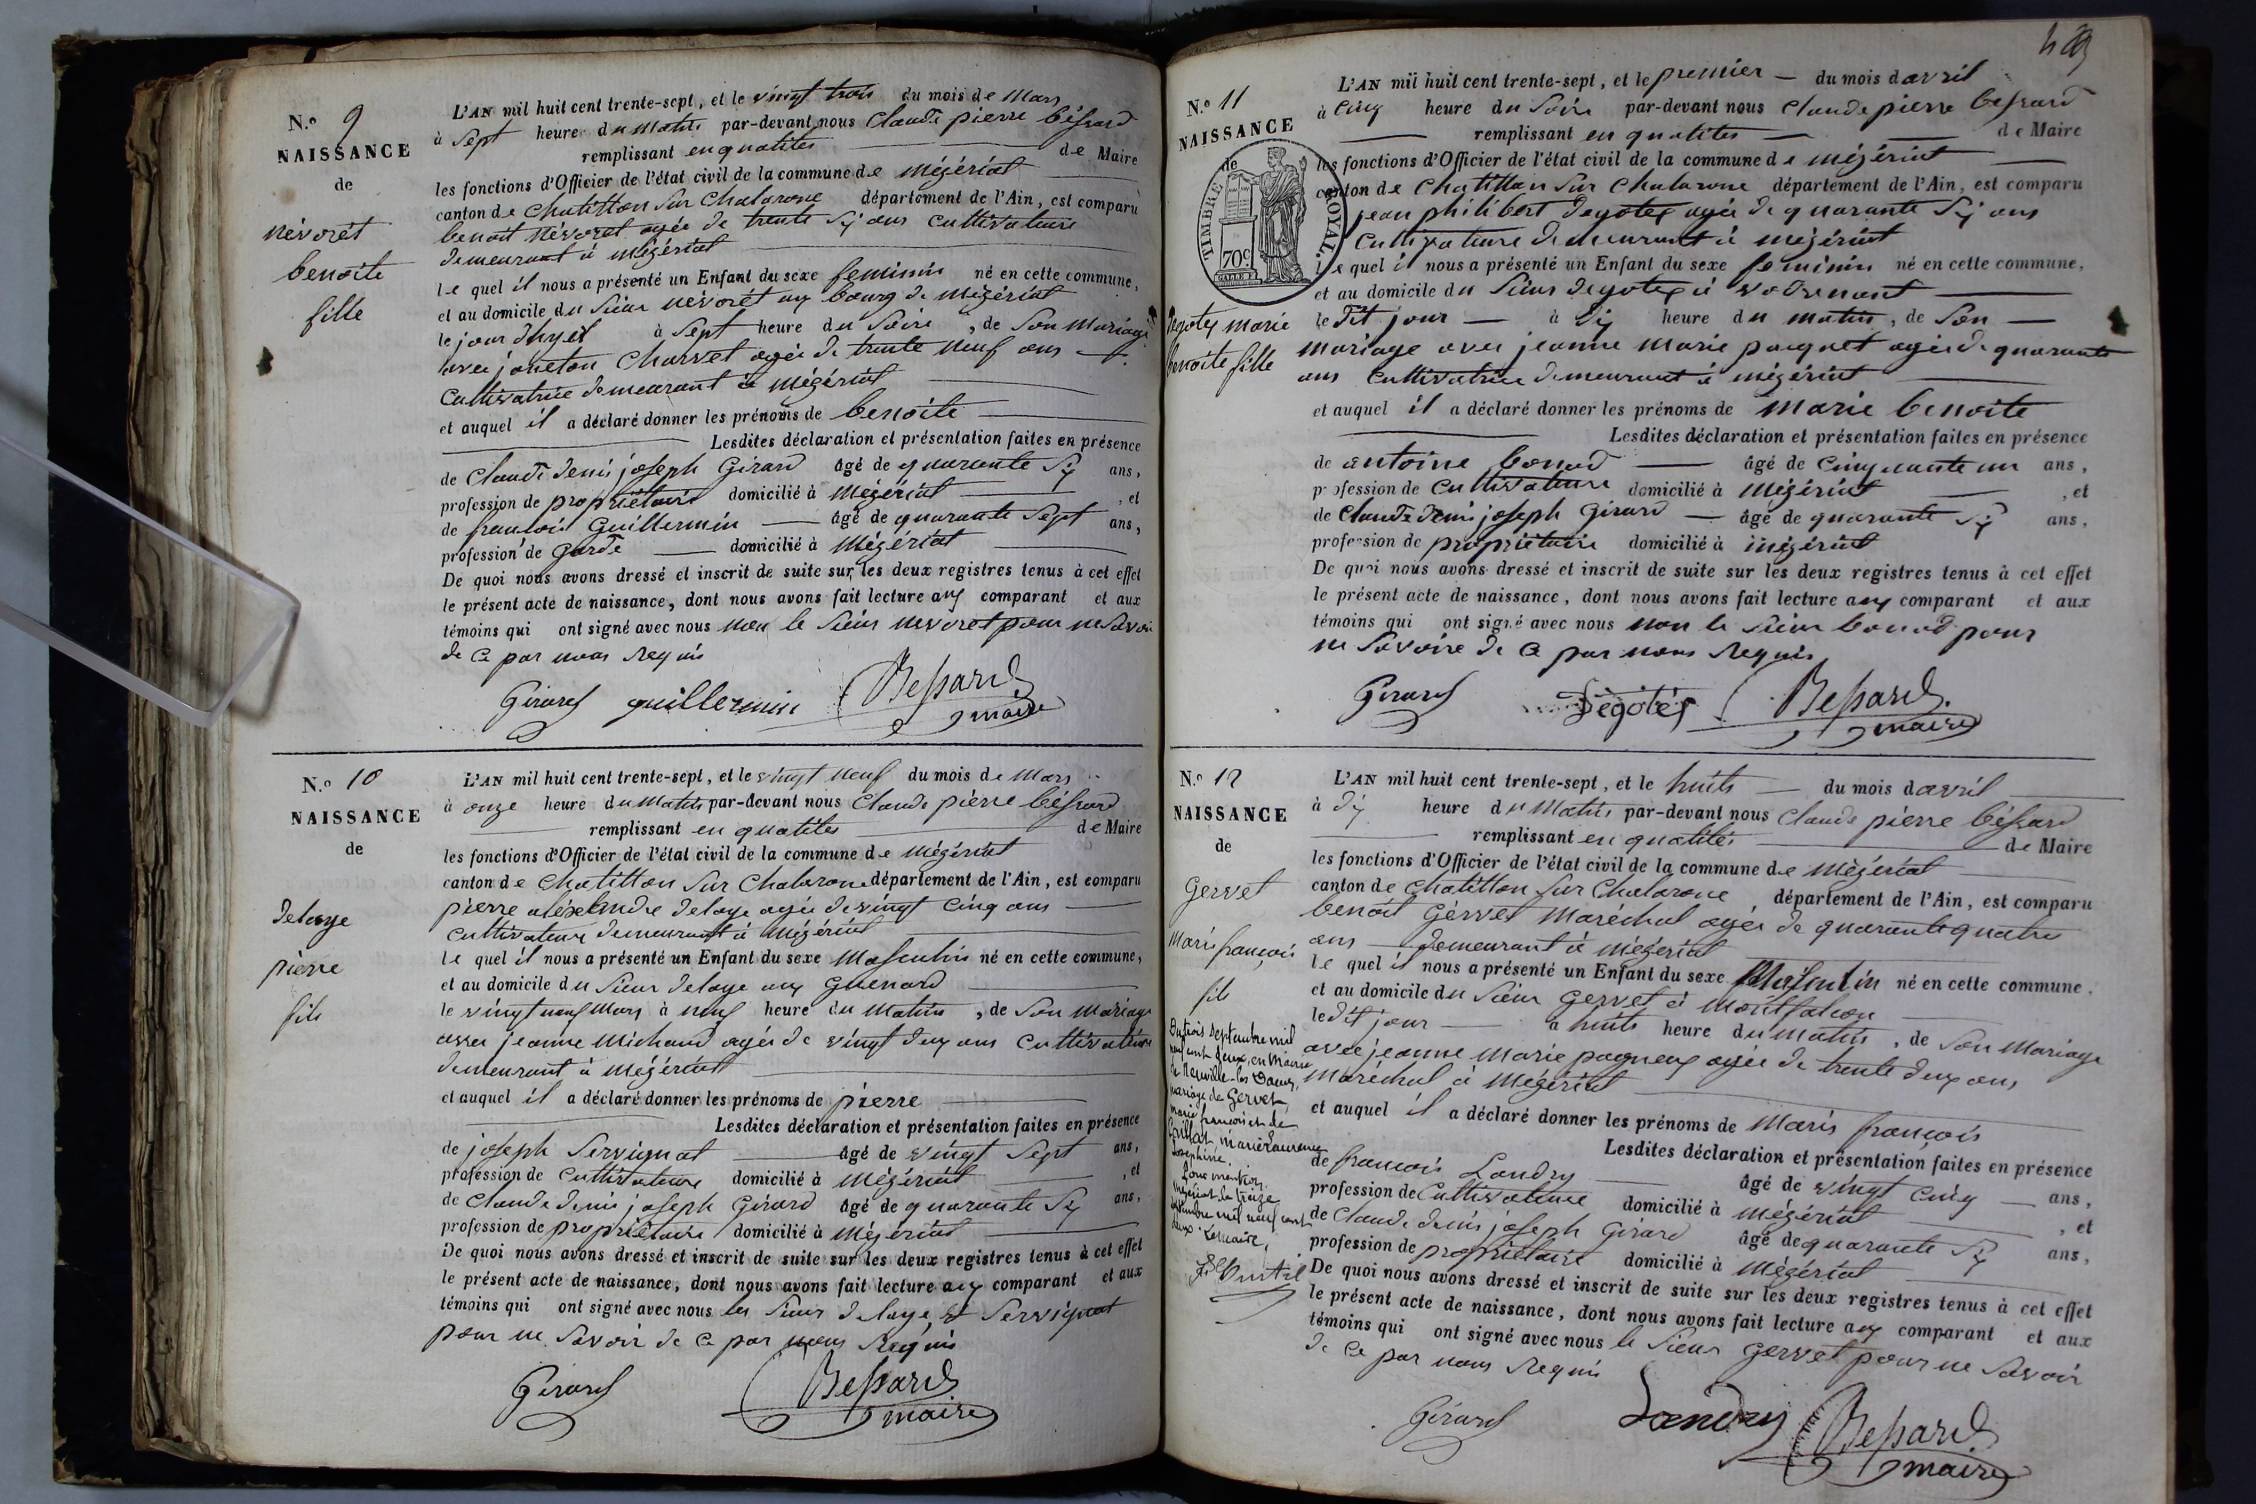 N.º 9
NAISSANCE
de
névorét
benoite
fille
L'AN mil huit cent trente-sept, et le vingt trois du mois de Mars
à Sept heure du Matin par-devant nous Claude pierre béssard
remplissant en qualités de Maire
les fonctions d'Officier de l'état civil de la commune de Mégériat
canton de Chatillon Sur Chalarone département de l'Ain, est comparu
benoit Névoret agée de trente Six ans Cultivateure
demeurant à Mégériat
le quel il nous a présenté un Enfant du sexe feminin né en cette commune,
et au domicile du Sieur névorét au bourg de Mégériat
le jour dhyét à Sept heure du Soire, de Son Mariage
avec janeton Charvet agée de trente neuf ans
Cultivatrice demeurant à Mégériat
et auquel il a déclaré donner les prénoms de benoite
Lesdites déclaration et présentation faites en présence
de Claude denis joseph Girard âgé de quarante Six ans,
profession de propriétaire domicilié à Mégériat, et
de francois Guillermin âgé de quarante Sept ans,
profession de garde domicilié à Mégériat
De quoi nous avons dressé et inscrit de suite sur les deux registres tenus à cet effet
le présent acte de naissance, dont nous avons fait lecture aux comparant et aux
témoins qui ont signé avec nous non le Sieur nevoret pour ne Savoir
de Ce par nous Requis
Girard guillermin Bessard
maire
N.º 10
NAISSANCE
de
delaye
pierre
fils
L'AN mil huit cent trente-sept, et le vingt neuf du mois de Mars
à onze heure du Matin par-devant nous Claude pierre béssard
remplissant en qualités de Maire
les fonctions d'Officier de l'état civil de la commune de Mégériat
canton de Chatillon Sur Chalarone département de l'Ain, est comparu
pierre aléxandre delaye agée de vingt Cinq ans
Cultivateure demeurant à Mégériat
le quel il nous a présenté un Enfant du sexe Masculin né en cette commune,
et au domicile du Sieur delaye aux Guenard
le vingt neuf Mars à neuf heure du Matin, de Son Mariage
avec jeanne Michaud agée de vingt deux ans Cultivatrice
demeurant à Mégériat
et auquel il a déclaré donner les prénoms de pierre
Lesdites déclaration et présentation faites en présence
de joseph Servignat âgé de vingt Sept ans,
profession de Cultivateure domicilié à Mégériat, et
de Claude denis joseph Girard âgé de quarante Six ans,
profession de propriétaire domicilié à Mégériat
De quoi nous avons dressé et inscrit de suite sur les deux registres tenus à cet effet
le présent acte de naissance, dont nous avons fait lecture aux comparant et aux
témoins qui ont signé avec nous les Sieur delaye et Servignat
pour ne Savoir de Ce par nous Requis
Girard Bessard
maire
N.º 11
NAISSANCE
de
TIMBRE ROYAL.
70c
degotex marie
benoite fille
L'AN mil huit cent trente-sept, et le premier du mois davril
à Cinq heure du Soire par-devant nous Claude pierre bessard
remplissant en qualites de Maire
les fonctions d'Officier de l'état civil de la commune de Mégériat
canton de Chatillon Sur Chalarone département de l'Ain, est comparu
jean philibert degotex agée de quarante Six ans
Cultivateure demeurant à Mégériat
le quel il nous a présenté un Enfant du sexe feminin né en cette commune,
et au domicile du Sieur degotex à
le dit jour à dix heure du matin, de Son
mariage avec jeanne marie paquet agée de quarante
ans Cultivatrice demeurant à Mégériat
et auquel il a déclaré donner les prénoms de marie benoite
Lesdites déclaration et présentation faites en présence
de antoine bonod âgé de Cinquante un ans,
profession de Cultivateure domicilié à Mégériat, et
de Claude denis joseph Girard âgé de quarante Six ans,
profession de propriétaire domicilié à Mégériat
De quoi nous avons dressé et inscrit de suite sur les deux registres tenus à cet effet
le présent acte de naissance, dont nous avons fait lecture aux comparant et aux
témoins qui ont signé avec nous non le Sieur bonod pour
ne Savoire de Ce par nous Requis
Girard Dégotéx Bessard
maire
N.º 12
NAISSANCE
de
Gervet
Marie françois
fils
Du trois septembre mil
neuf cent deux, en Mairie
de Neuville-les-Dames,
mariage de Gervet
marie françois et de
Marie Laurence
Josephine.
Pour mention.
Mégériat, le treize
septembre mil neuf cent
deux. Le Maire,
L'AN mil huit cent trente-sept, et le huits du mois davril
à dix heure du Matin par-devant nous Claude pierre béssard
remplissant en qualités de Maire
les fonctions d'Officier de l'état civil de la commune de Mégériat
canton de Chatillon Sur Chalarone, département de l'Ain, est comparu
benoit Gérvet Maréchal agée de quarante quatre
ans demeurant à Mégériat
le quel il nous a présenté un Enfant du sexe Masculin né en cette commune,
et au domicile du Sieur Gervet à Montfalcon
le dit jour à huits heure du Matin, de Son Mariage
avec jeanne Marie pagneux agée de trente deux ans
Maréchal à Mégériat
et auquel il a déclaré donner les prénoms de Marie françois
Lesdites déclaration et présentation faites en présence
de francois Landry âgé de vingt Cinq ans,
profession de Cultivateure domicilié à Mégériat, et
de Claude denis joseph Girard âgé de quarante Six ans,
profession de propriétaire domicilié à Mégériat
De quoi nous avons dressé et inscrit de suite sur les deux registres tenus à cet effet
le présent acte de naissance, dont nous avons fait lecture aux comparant et aux
témoins qui ont signé avec nous le Sieur Gervet pour ne Savoir
de Ce par nous Requis
Girard Landry Bessard
maire